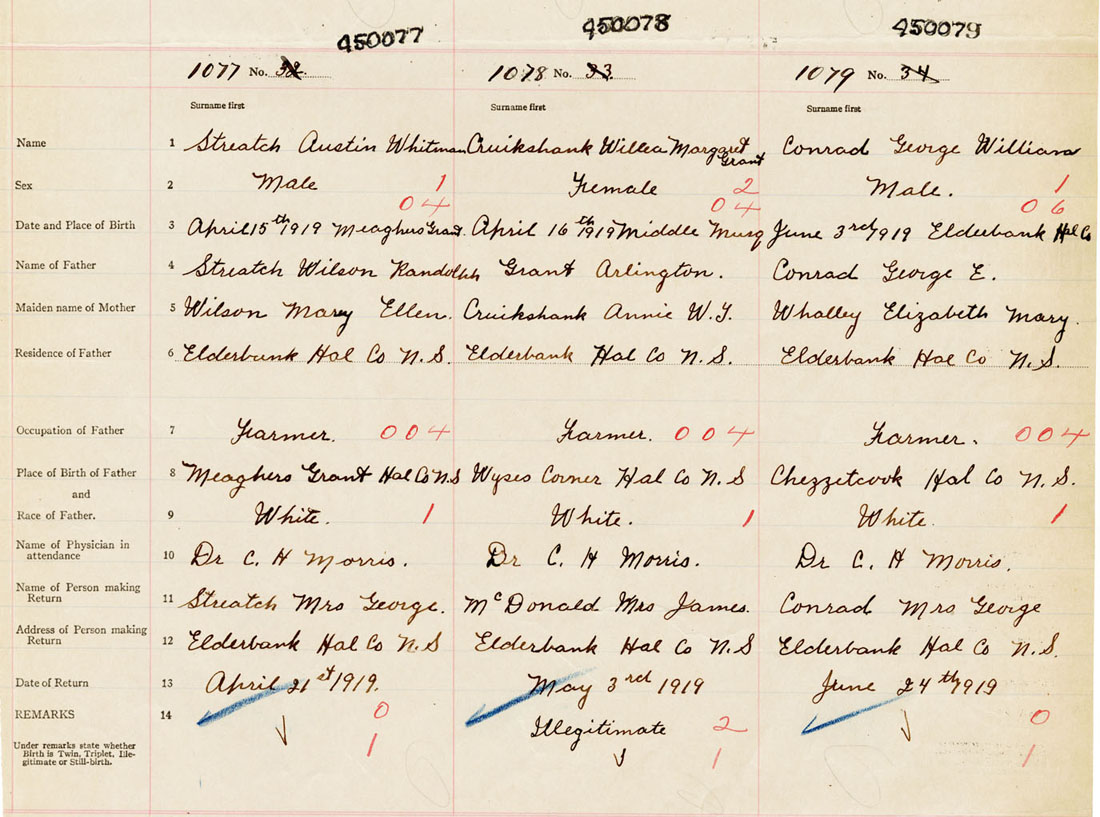 450077 450078 450079
1077 No. 32. 1078 No. 33. 1079 No. 34
Surname first Surname first Surname first
Name 1 Streatch Austin Whitman Cruikshank Willea Margaret Grant Conrad George William
Sex 2 Male 1 Female 2 Male. 1
04 04 06
Date and Place of Birth 3 April 15th 1919 Meaghers Grant. April 16th 1919 Middle Musq June 3rd 1919 Elderbank Hal Co
Name of Father 4 Streatch Wilson Randolph Grant Arlington. Conrad George E.
Maiden name of Mother 5 Wilson Mary Ellen. Cruikshank Annie W.Y. Whalley Elizabeth Mary.
Residence of Father 6 Elderbank Hal Co N.S. Elderbank Hal Co N.S. Elderbank Hal Co N.S.
Occupation of Father 7 Farmer. 004 Farmer. 004 Farmer. 004
Place of Birth of Father 8 Meaghers Grant Hal Co N.S Wyses Corner Hal Co N.S Chezzetcook Hal Co N.S.
and
Race of Father. 9 White. 1 White. 1 White. 1
Name of Physician in
attendance 10 Dr C. H Morris. Dr C. H Morris. Dr C. H Morris.
Name of Person making
Return 11 Streatch Mrs George. McDonald Mrs James. Conrad Mrs George
Address of Person making
Return 12 Elderbank Hal Co N.S Elderbank Hal Co N.S Elderbank Hal Co N.S.
Date of Return 13 April 21st 1919. May 3rd 1919 June 24th 1919
REMARKS 14 0 Illegitimate 2 0
Under remarks state whether
Birth is Twin, Triplet, Ille-
gitimate or Still-birth. 1 1 1